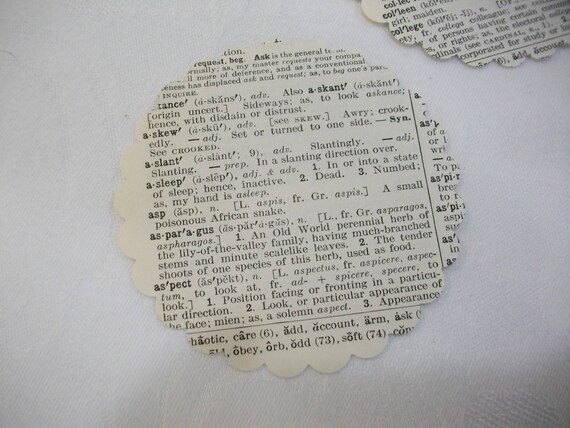 tion.
request, beg. Ask is the general te
mally; as, my master requests your compa
ll more of deference, and as a conventional
ess has displaced ask and request; as, to beg one's par
INQUIRE.
kance' (ȧ-skăns'), adv. Also a-skant' (ȧ-skănt').
[origin uncert.] Sideways; as, to look askance;
hence, with disdain or distrust.
a-skew' (ȧ-skū'), adv. [see SKEW.] Awry; crook-
edly. — adj. Set or turned to one side. — Syn.
See CROOKED.
a-slant' (ȧ-slȧnt'; 9), adv. Slantingly. — adj.
Slanting. — prep. In a slanting direction over.
a-sleep' (ȧ-slēp'), adj. & adv. 1. In or into a state
of sleep; hence, inactive. 2. Dead. 3. Numbed;
as, my hand is asleep.
asp (ăsp), n. [L. aspis, fr. Gr. aspis.] A small
poisonous African snake.
as-par'a-gus (ăs-păr'ȧ-gŭs), n. [L., fr. Gr. asparagos,
aspharagos.] 1. An Old World perennial herb of
the lily-of-the-valley family, having much-branched
stems and minute scalelike leaves. 2. The tender
shoots of one species of this herb, used as food.
as'pect (ăs'pĕkt), n. [L. aspectus, fr. aspicere, aspec-
tum, to look at, fr. ad- + spicere, specere, to
look.] 1. Position facing or fronting in a particu-
lar direction. 2. Look, or particular appearance of
the face; mien; as, a solemn aspect. 3. Appearance
haotic, câre (6), ădd, ăccount, ärm, ȧsk (
ōbey, ôrb, ŏdd (73), sŏft (74)
as'p
or a
as-pi-r
To p
as'pi-
col'leen (kŏl'ēn; -ēn'), n.
girl; maiden.
col'lege (kŏl'ĕj; -ĭj), n.
ty, fr. collega colleague; see
of persons having certain
or rights; as, the electoral
dinals (see CARDINAL, n. 1)
corporated for study or
ădd, ăccou